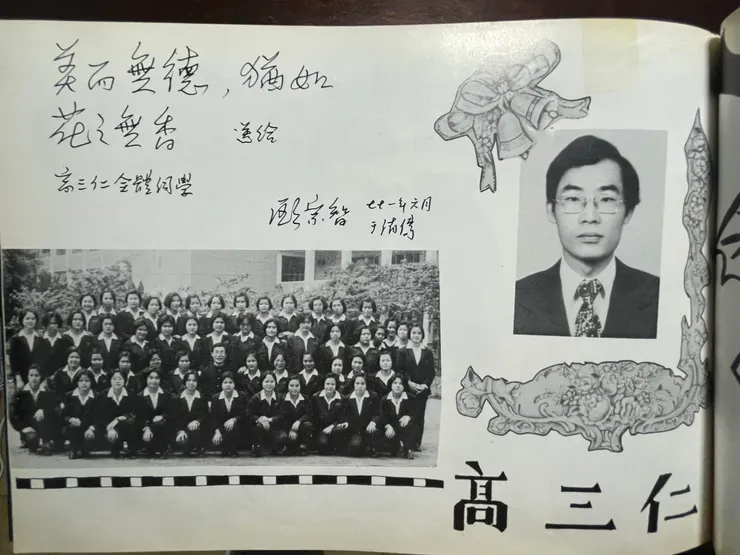 美而無德，猶如
花之無香 給
高三仁全體同學
宗智 七十一年六月
高三仁